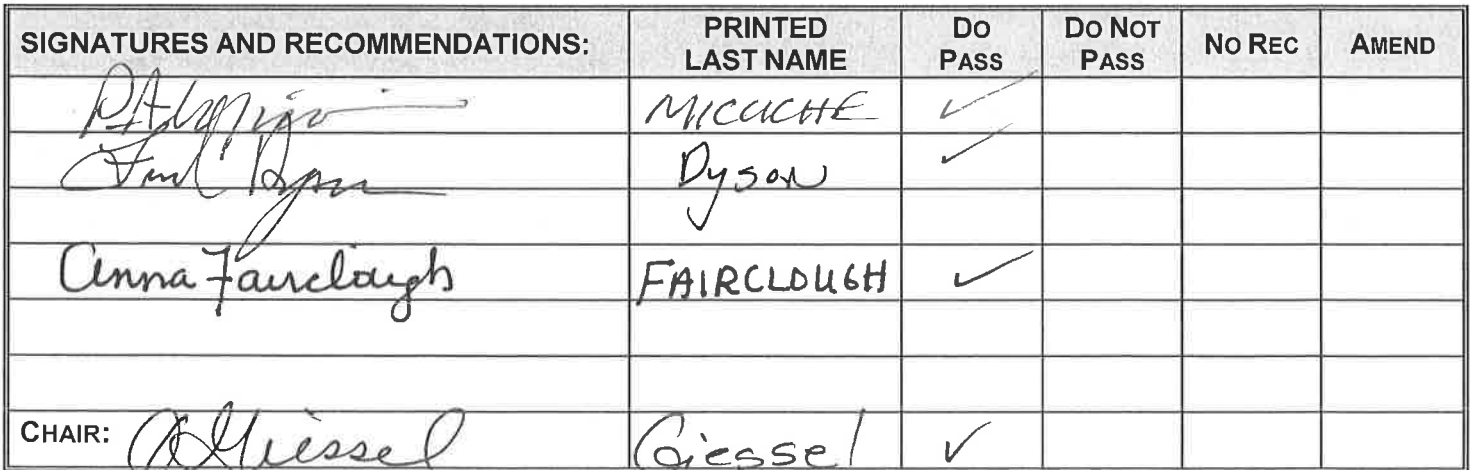 SIGNATURES AND RECOMMENDATIONS: PRINTED LAST NAME DO PASS DO NOT PASS NO REC AMEND
MICCICHE ✓
Dyson ✓
Anna Fairclough FAIRCLOUGH ✓
CHAIR: Giessel Giessel ✓